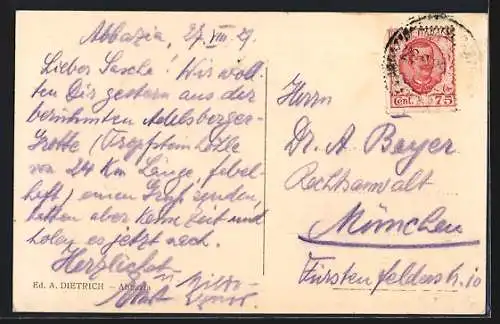 Abbazia, 27. VIII. 29.
Lieber Sascha! Wir woll-
ten Dir gestern aus der
berühmten Adelsberger-
Grotte (Tropfsteinhöhle
von 24 Km Länge, fabel-
haft) einen Gruß senden,
hatten aber keine Zeit und
holen es jetzt nach.
Herzlichst
Ed. A. DIETRICH – Abbazia
Cent. 75
Herrn
Dr. A Beyer
Rechtsanwalt
München
Fürstenfelderstr. 10